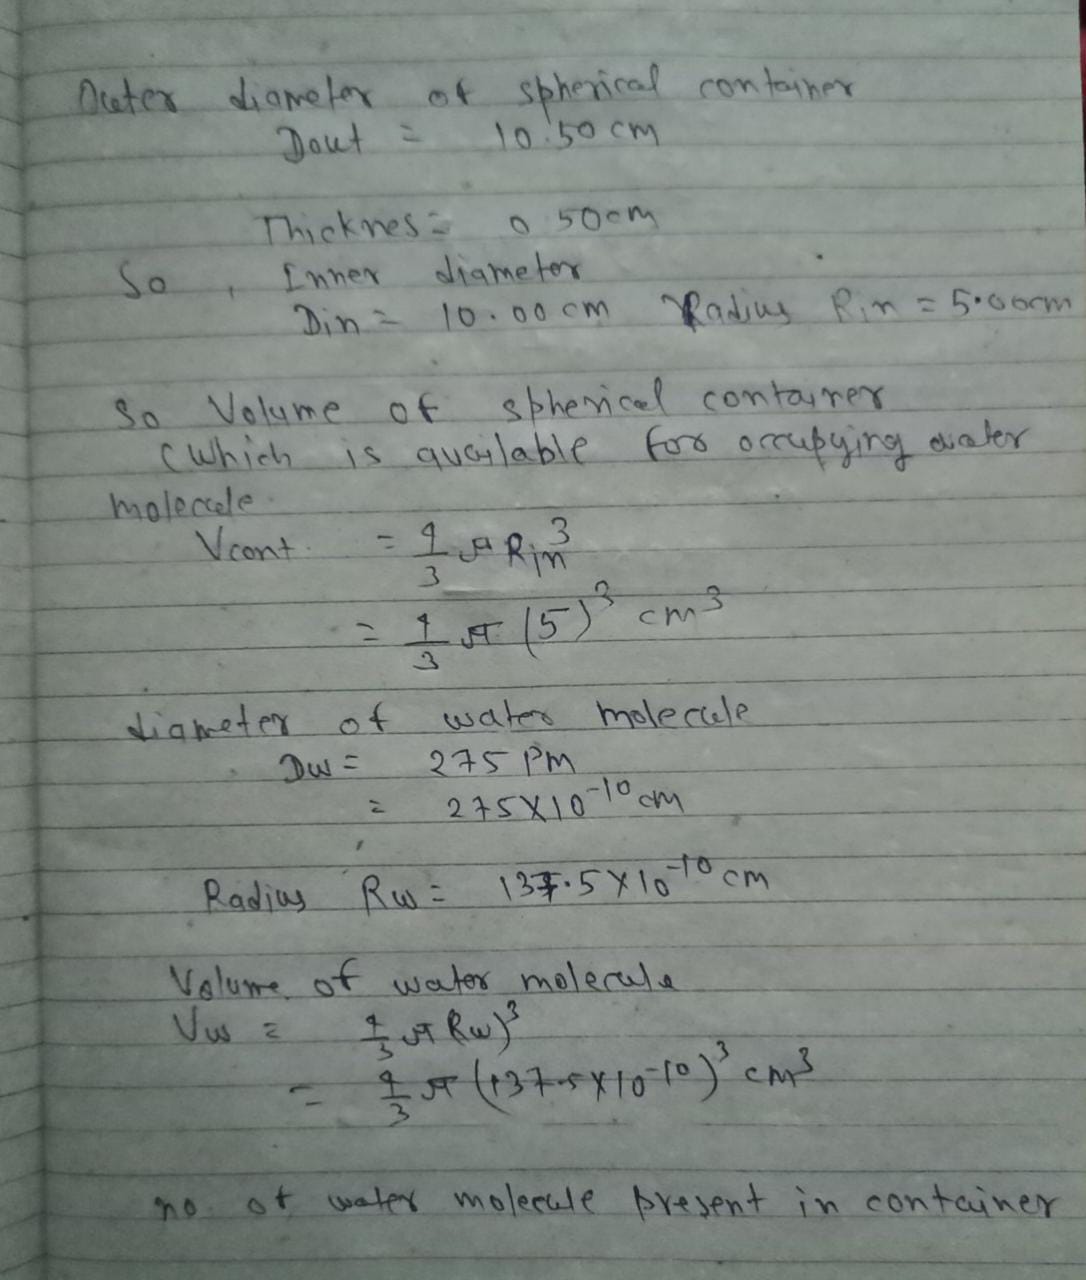 Outer diameter of spherical container
Dout = 10.50 cm
Thicknes = 0.50cm
So, Inner diameter
Din = 10.00 cm Radius Rin = 5.00cm
So Volume of spherical container
(which is available for occupying water
molecule
Vcont. = 4/3 π Rin³
= 4/3 π (5)³ cm³
diameter of water molecule
Dw = 275 Pm
= 275×10⁻¹⁰ cm
Radius Rw = 137.5×10⁻¹⁰ cm
Volume of water molecule
Vw = 4/3 π Rw)³
= 4/3 π (137.5×10⁻¹⁰)³ cm³
no. of water molecule present in container